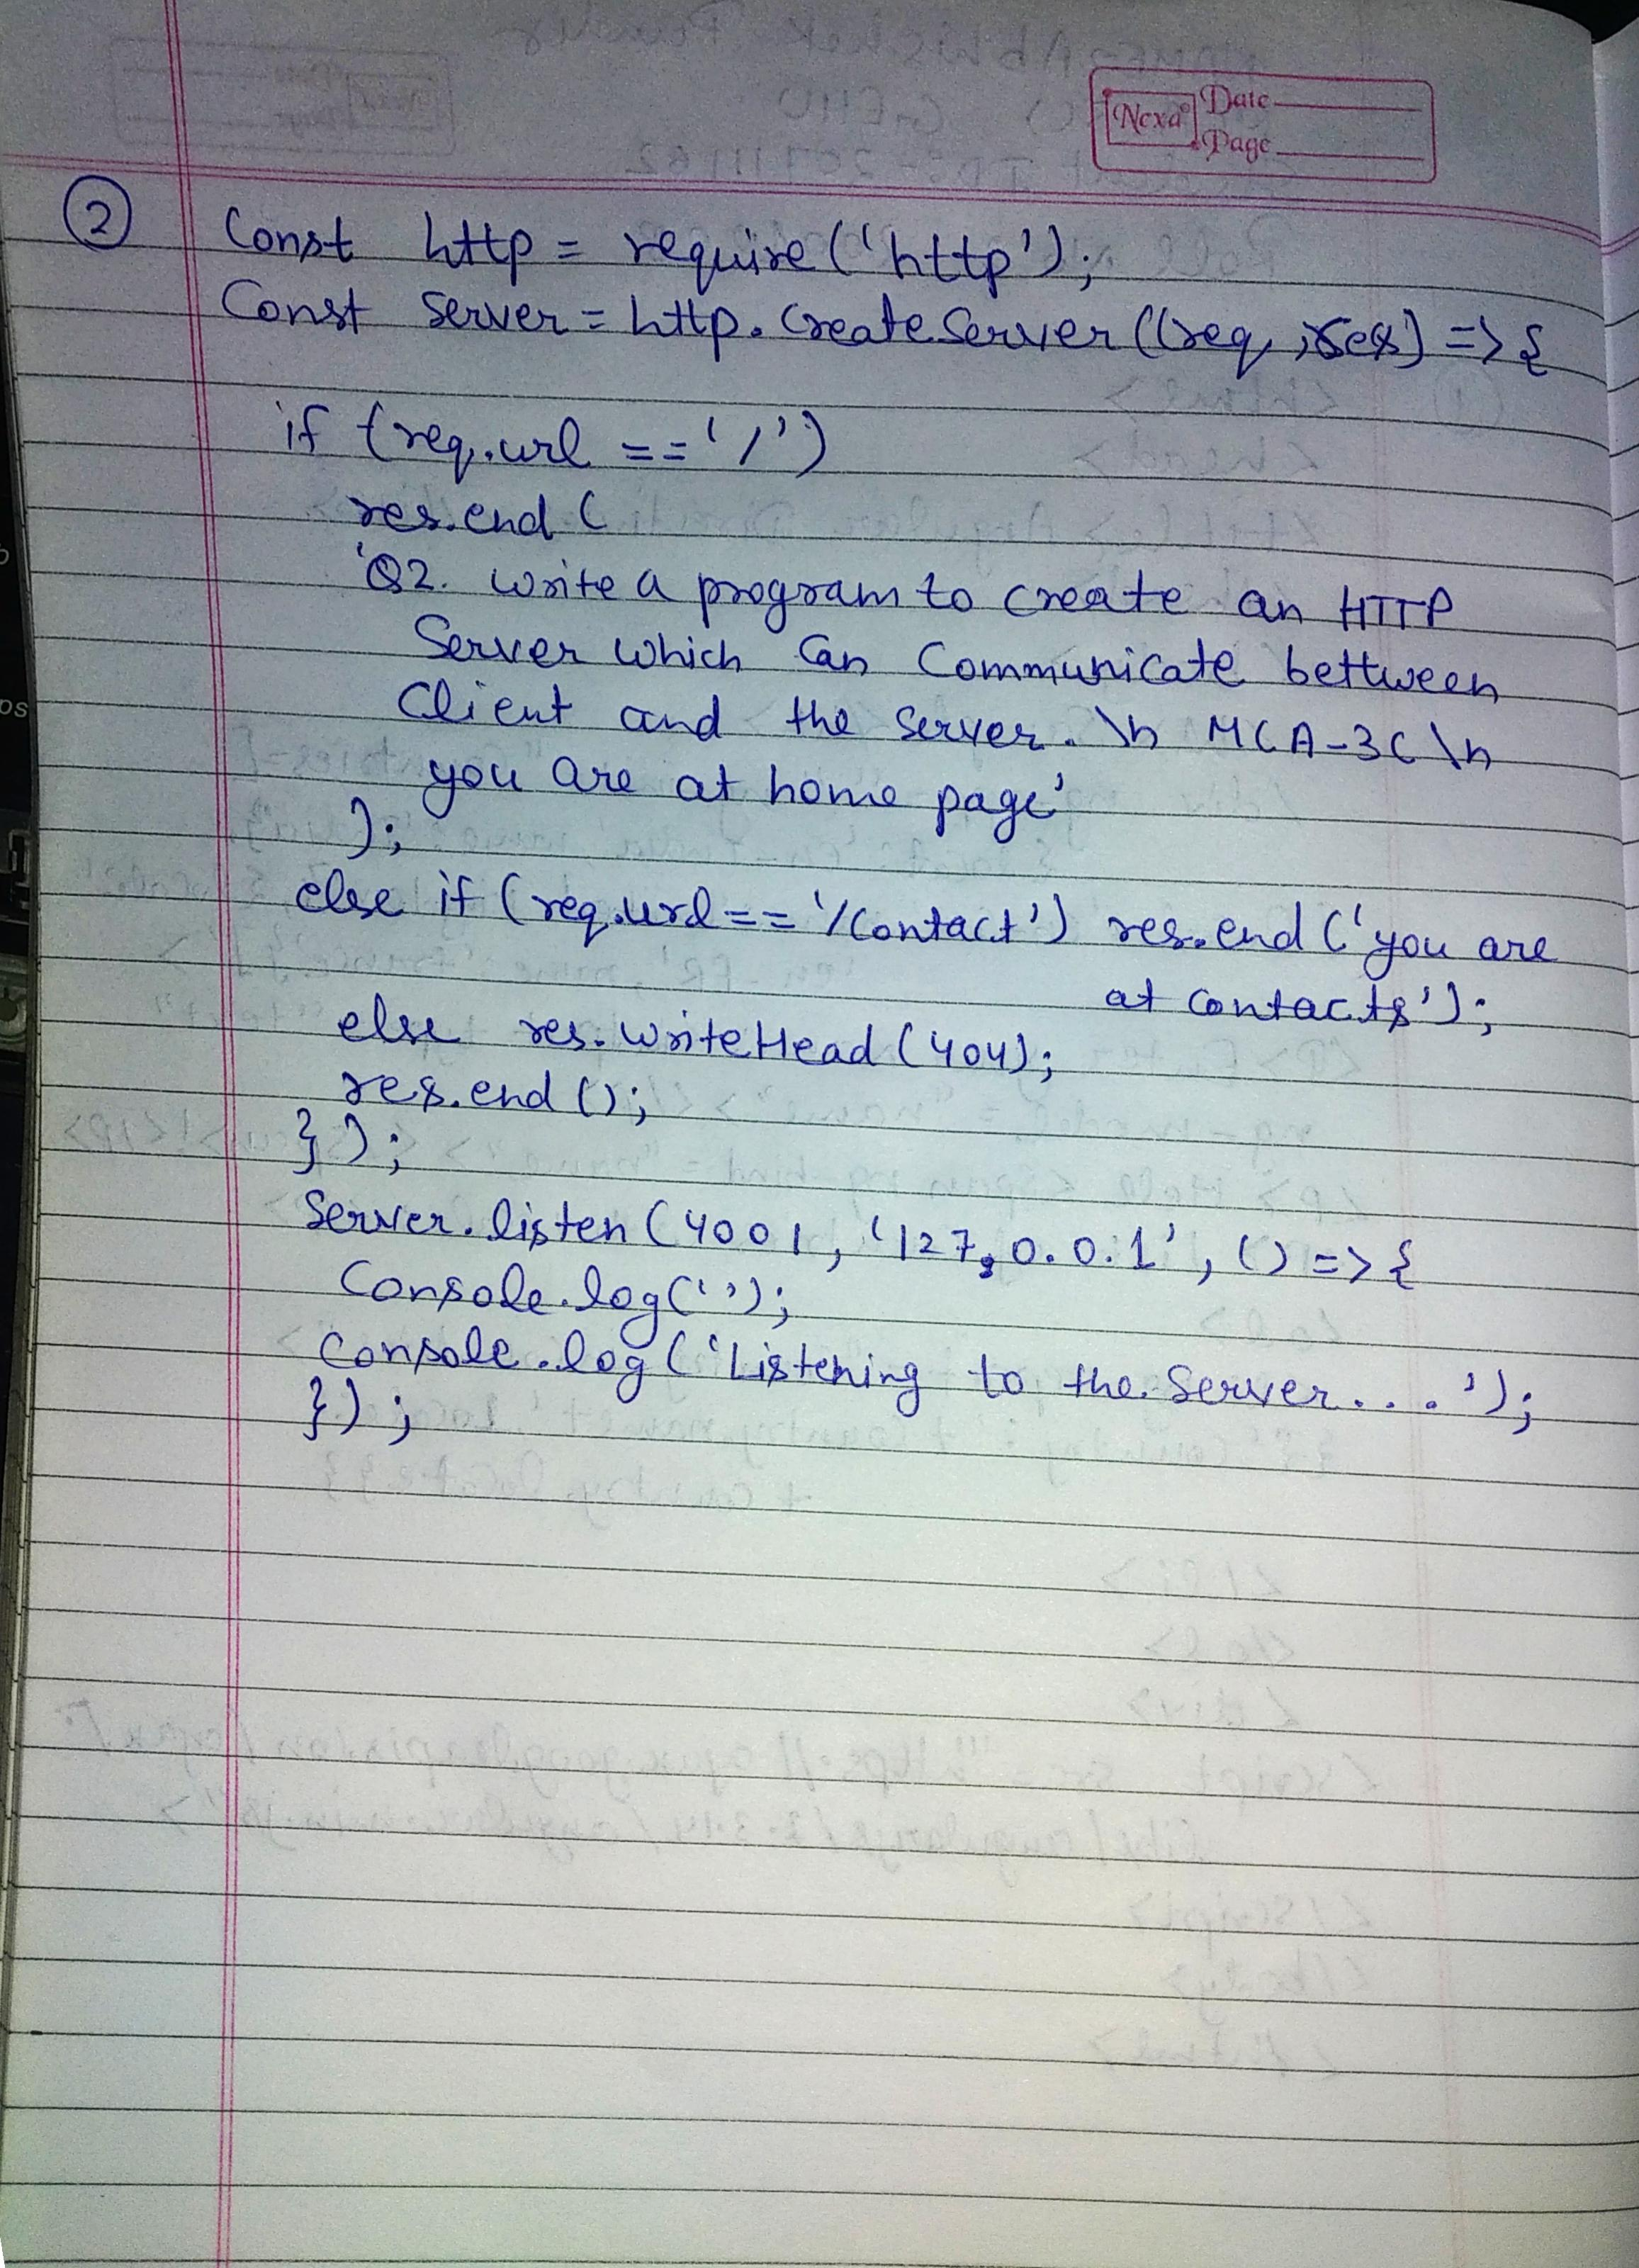 Nexa Date
Page
2 Const http = require('http');
Const server = http.createServer((req, res) => {
if (req.url == '/')
res.end (
'Q2. write a program to create an HTTP
Server which can communicate bettween
Client and the server. \n MCA-3C \n
you are at home page'
);
else if (req.url == '/contact') res.end ('you are
at contacts');
else res.writeHead (404);
res.end ();
});
Server.listen (4001, '127.0.0.1', () => {
Console.log('');
Console.log ('Listening to the server....');
});